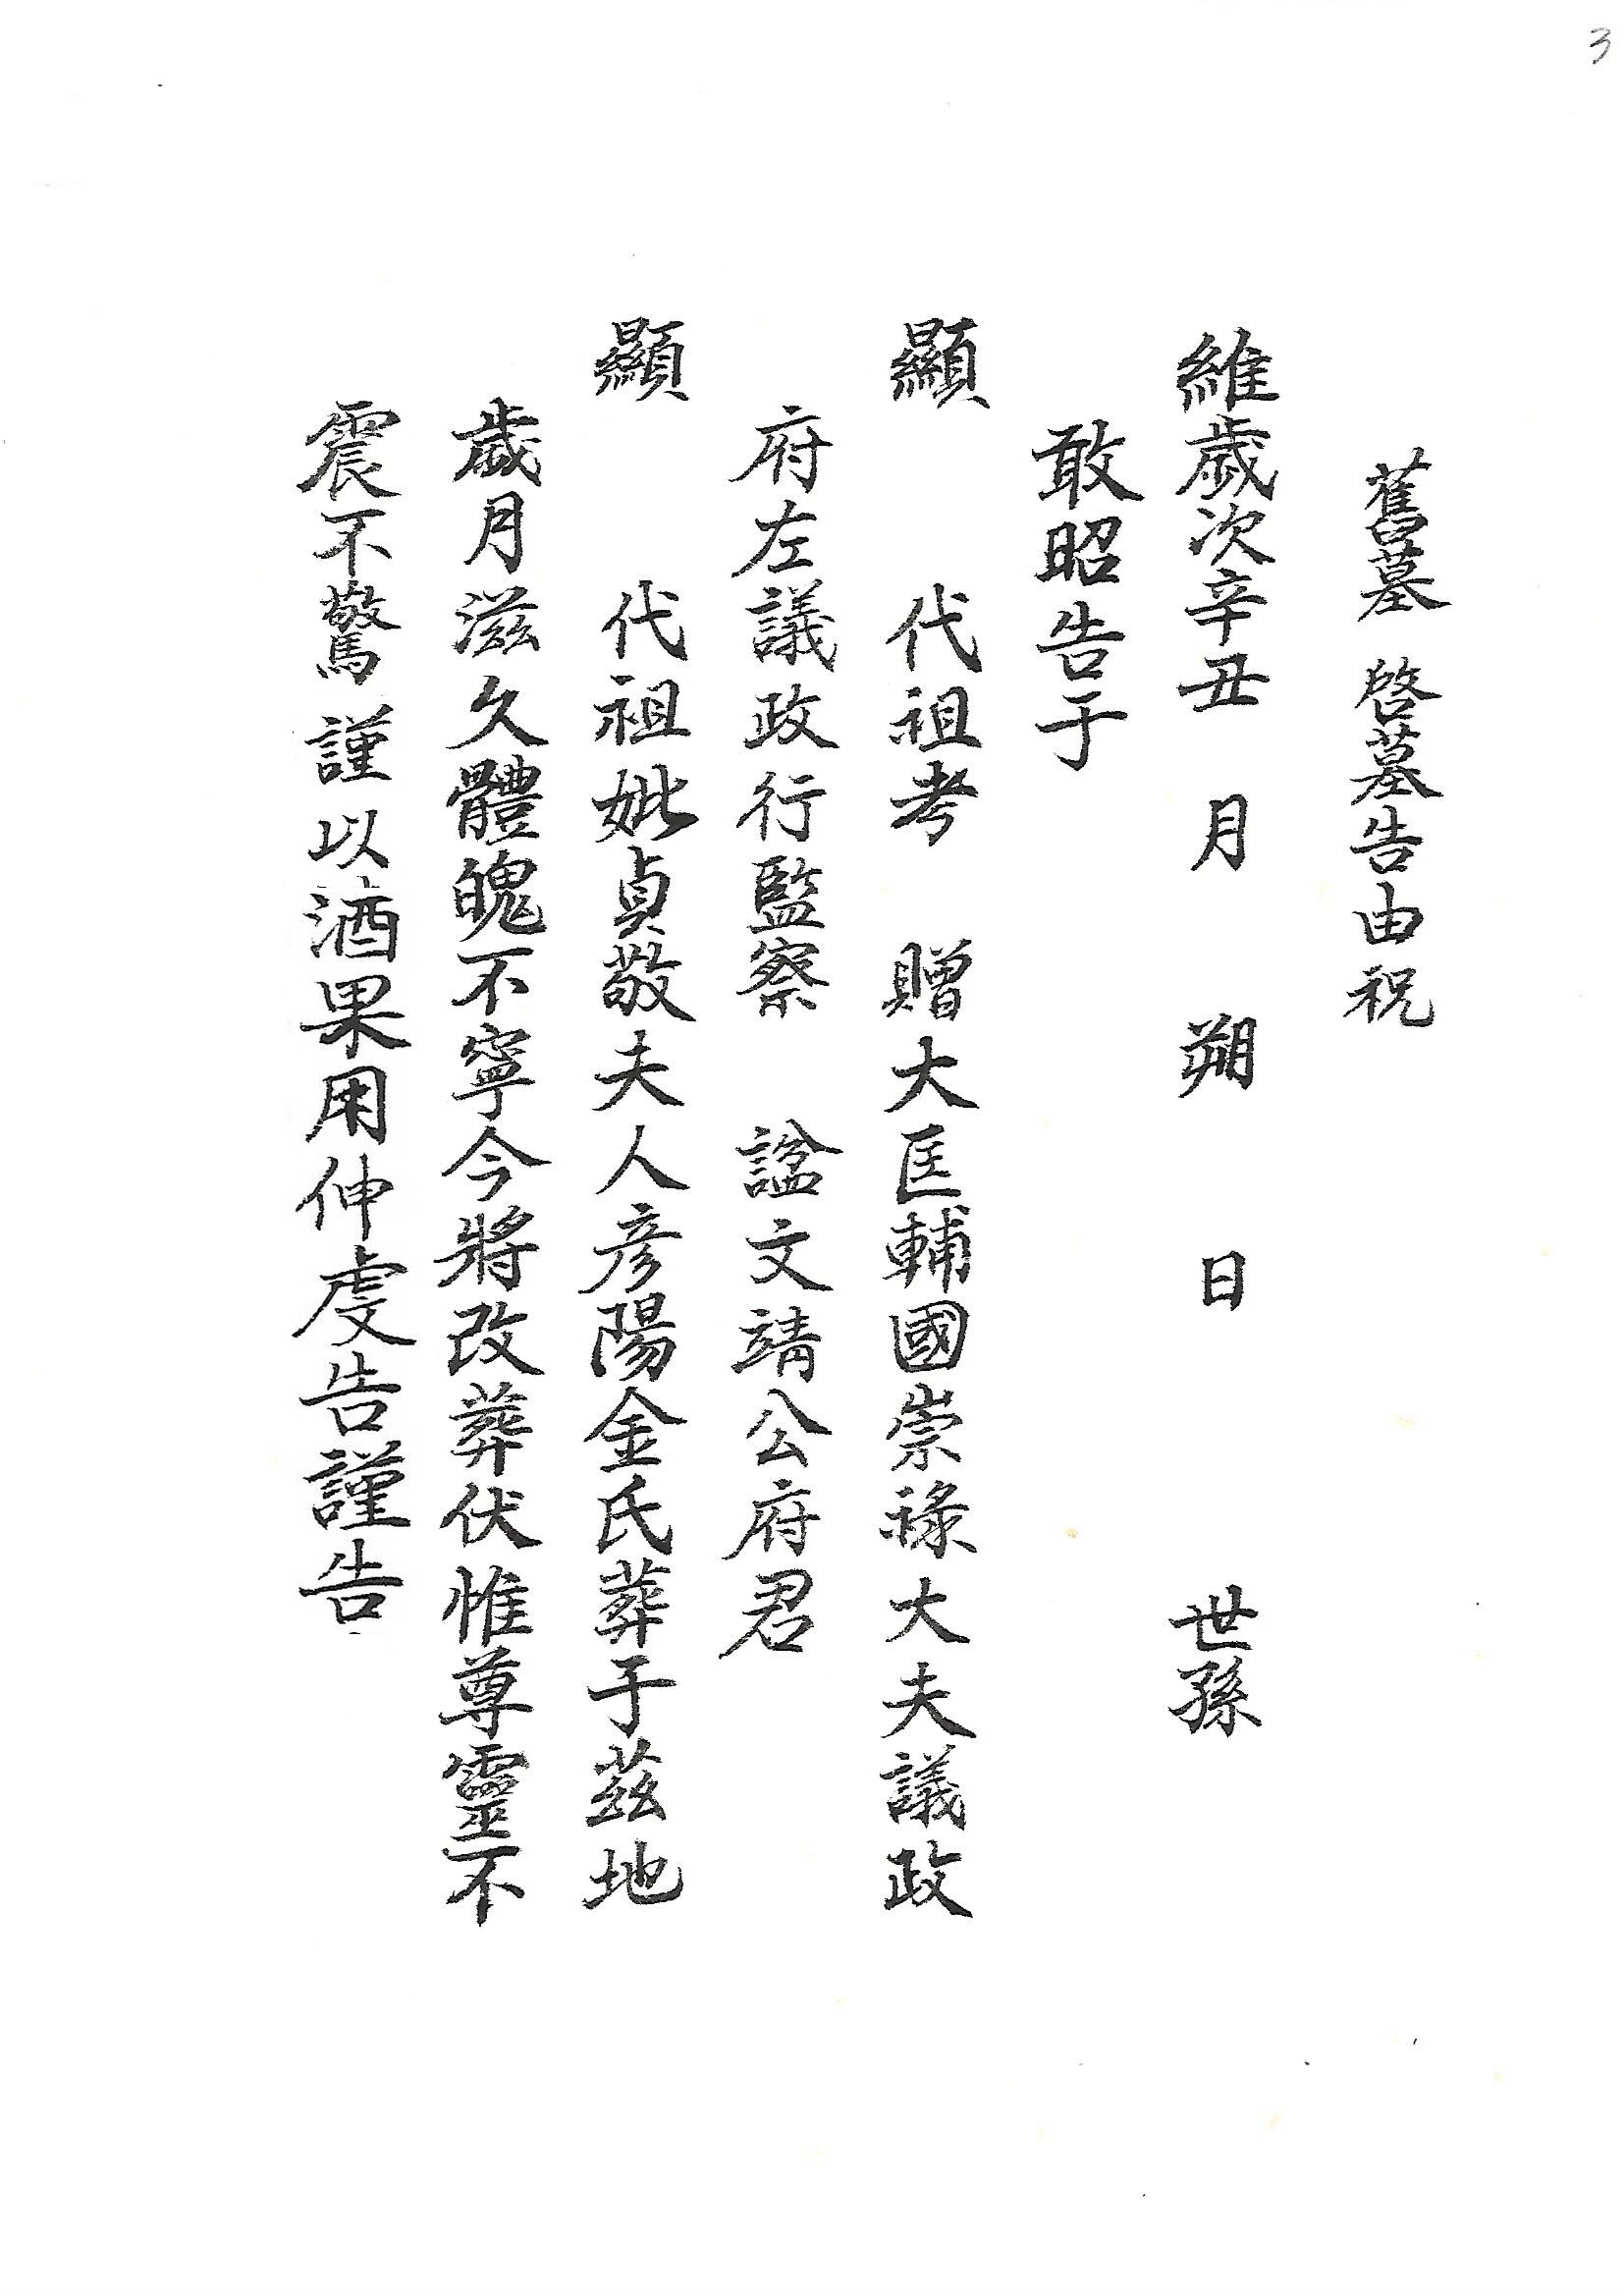 3
舊墓 啓墓告由祝
維歲次辛丑 月 朔 日 世孫
敢昭告于
顯 代祖考 贈大匡輔國崇祿大夫議政
府左議政行監察 諡文靖公府君
顯 代祖妣貞敬夫人彦陽金氏葬于茲地
歲月滋久體魄不寧今將改葬伏惟尊靈不
震不驚 謹以酒果用伸虔告謹告